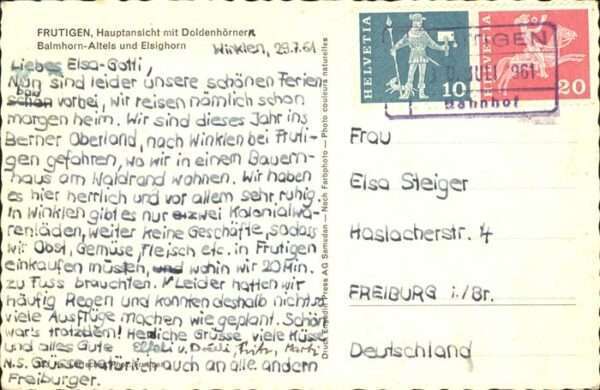 FRUTIGEN, Hauptansicht mit Doldenhörnern
Balmhorn-Altels und Elsighorn
Winklen, 29.7.61
Liebes Elsa-Gotti,
Nun sind leider unsere schönen Ferien
schon vorbei, wir reisen nämlich schon
morgen heim. Wir sind dieses Jahr ins
Berner Oberland, nach Winklen bei Fruti-
gen gefahren, wo wir in einem Bauern-
haus am Waldrand wohnen. Wir haben
es hier herrlich und vor allem sehr ruhig.
In Winklen gibt es nur zwei Kolonialwa-
renläden, weiter keine Geschäfte, sodass
wir Obst, Gemüse, Fleisch etc. in Frutigen
einkaufen müssten, wohin wir 20 Min.
zu Fuss brauchten. Leider hatten wir
häufig Regen und konnten deshalb nicht so
viele Ausflüge machen wie geplant. Schön
war's trotzdem! Herzliche Grüsse, viele Küsse
und alles Gute
N.S. Grüsse natürlich auch an alle andern
Freiburger.
Druck Engadin Press AG Samedan — Nach Farbphoto — Photo couleurs naturelles
HELVETIA
10
HELVETIA
20
FRUTIGEN
JULI 1961
Bahnhof
Frau
Elsa Steiger
Haslacherstr. 4
FREIBURG i./Br.
Deutschland